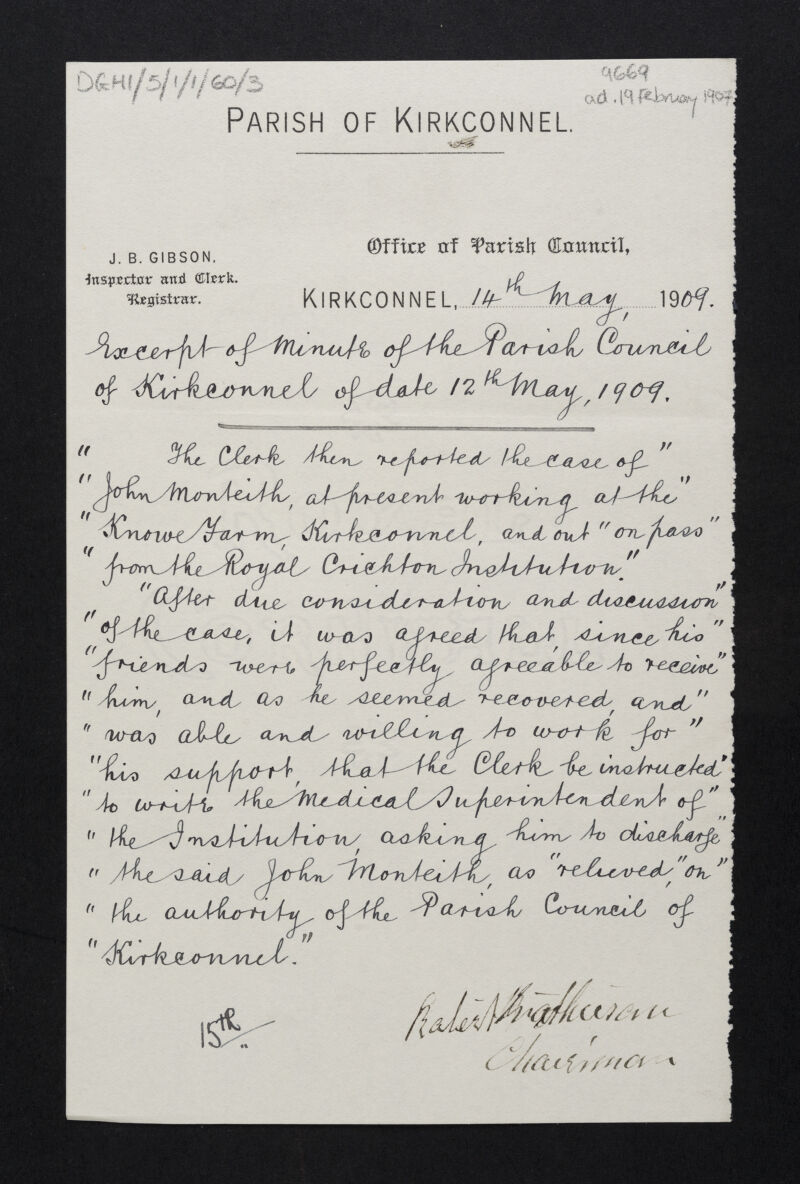 DGH1/5/1/1/60/3
9669
ad. 19 February 1907
PARISH OF KIRKCONNEL.
J. B. GIBSON,
Inspector and Clerk.
Registrar.
Office of Parish Council,
KIRKCONNEL, 14th May, 1909.
Excerpt of Minute of the Parish Council
of Kirkconnel of date 12th May, 1909.
" The Clerk then reported the case of "
" John Monteith, at present working at the "
" Knowe Farm, Kirkconnel, and out "on pass "
" from the Royal Crichton Institution."
"After due consideration and discussion "
" of the case, it was agreed that, since his "
" friends were perfectly agreeable to receive "
" him, and as he seemed recovered, and "
" was able and willing to work for "
" his support, that the Clerk be instructed "
" to write the Medical Superintendent of "
" the Institution, asking him to discharge "
" the said John Monteith, as "relieved," on "
" the authority of the Parish Council of
" Kirkconnel."
15th
Robert Mathieson
Chairman